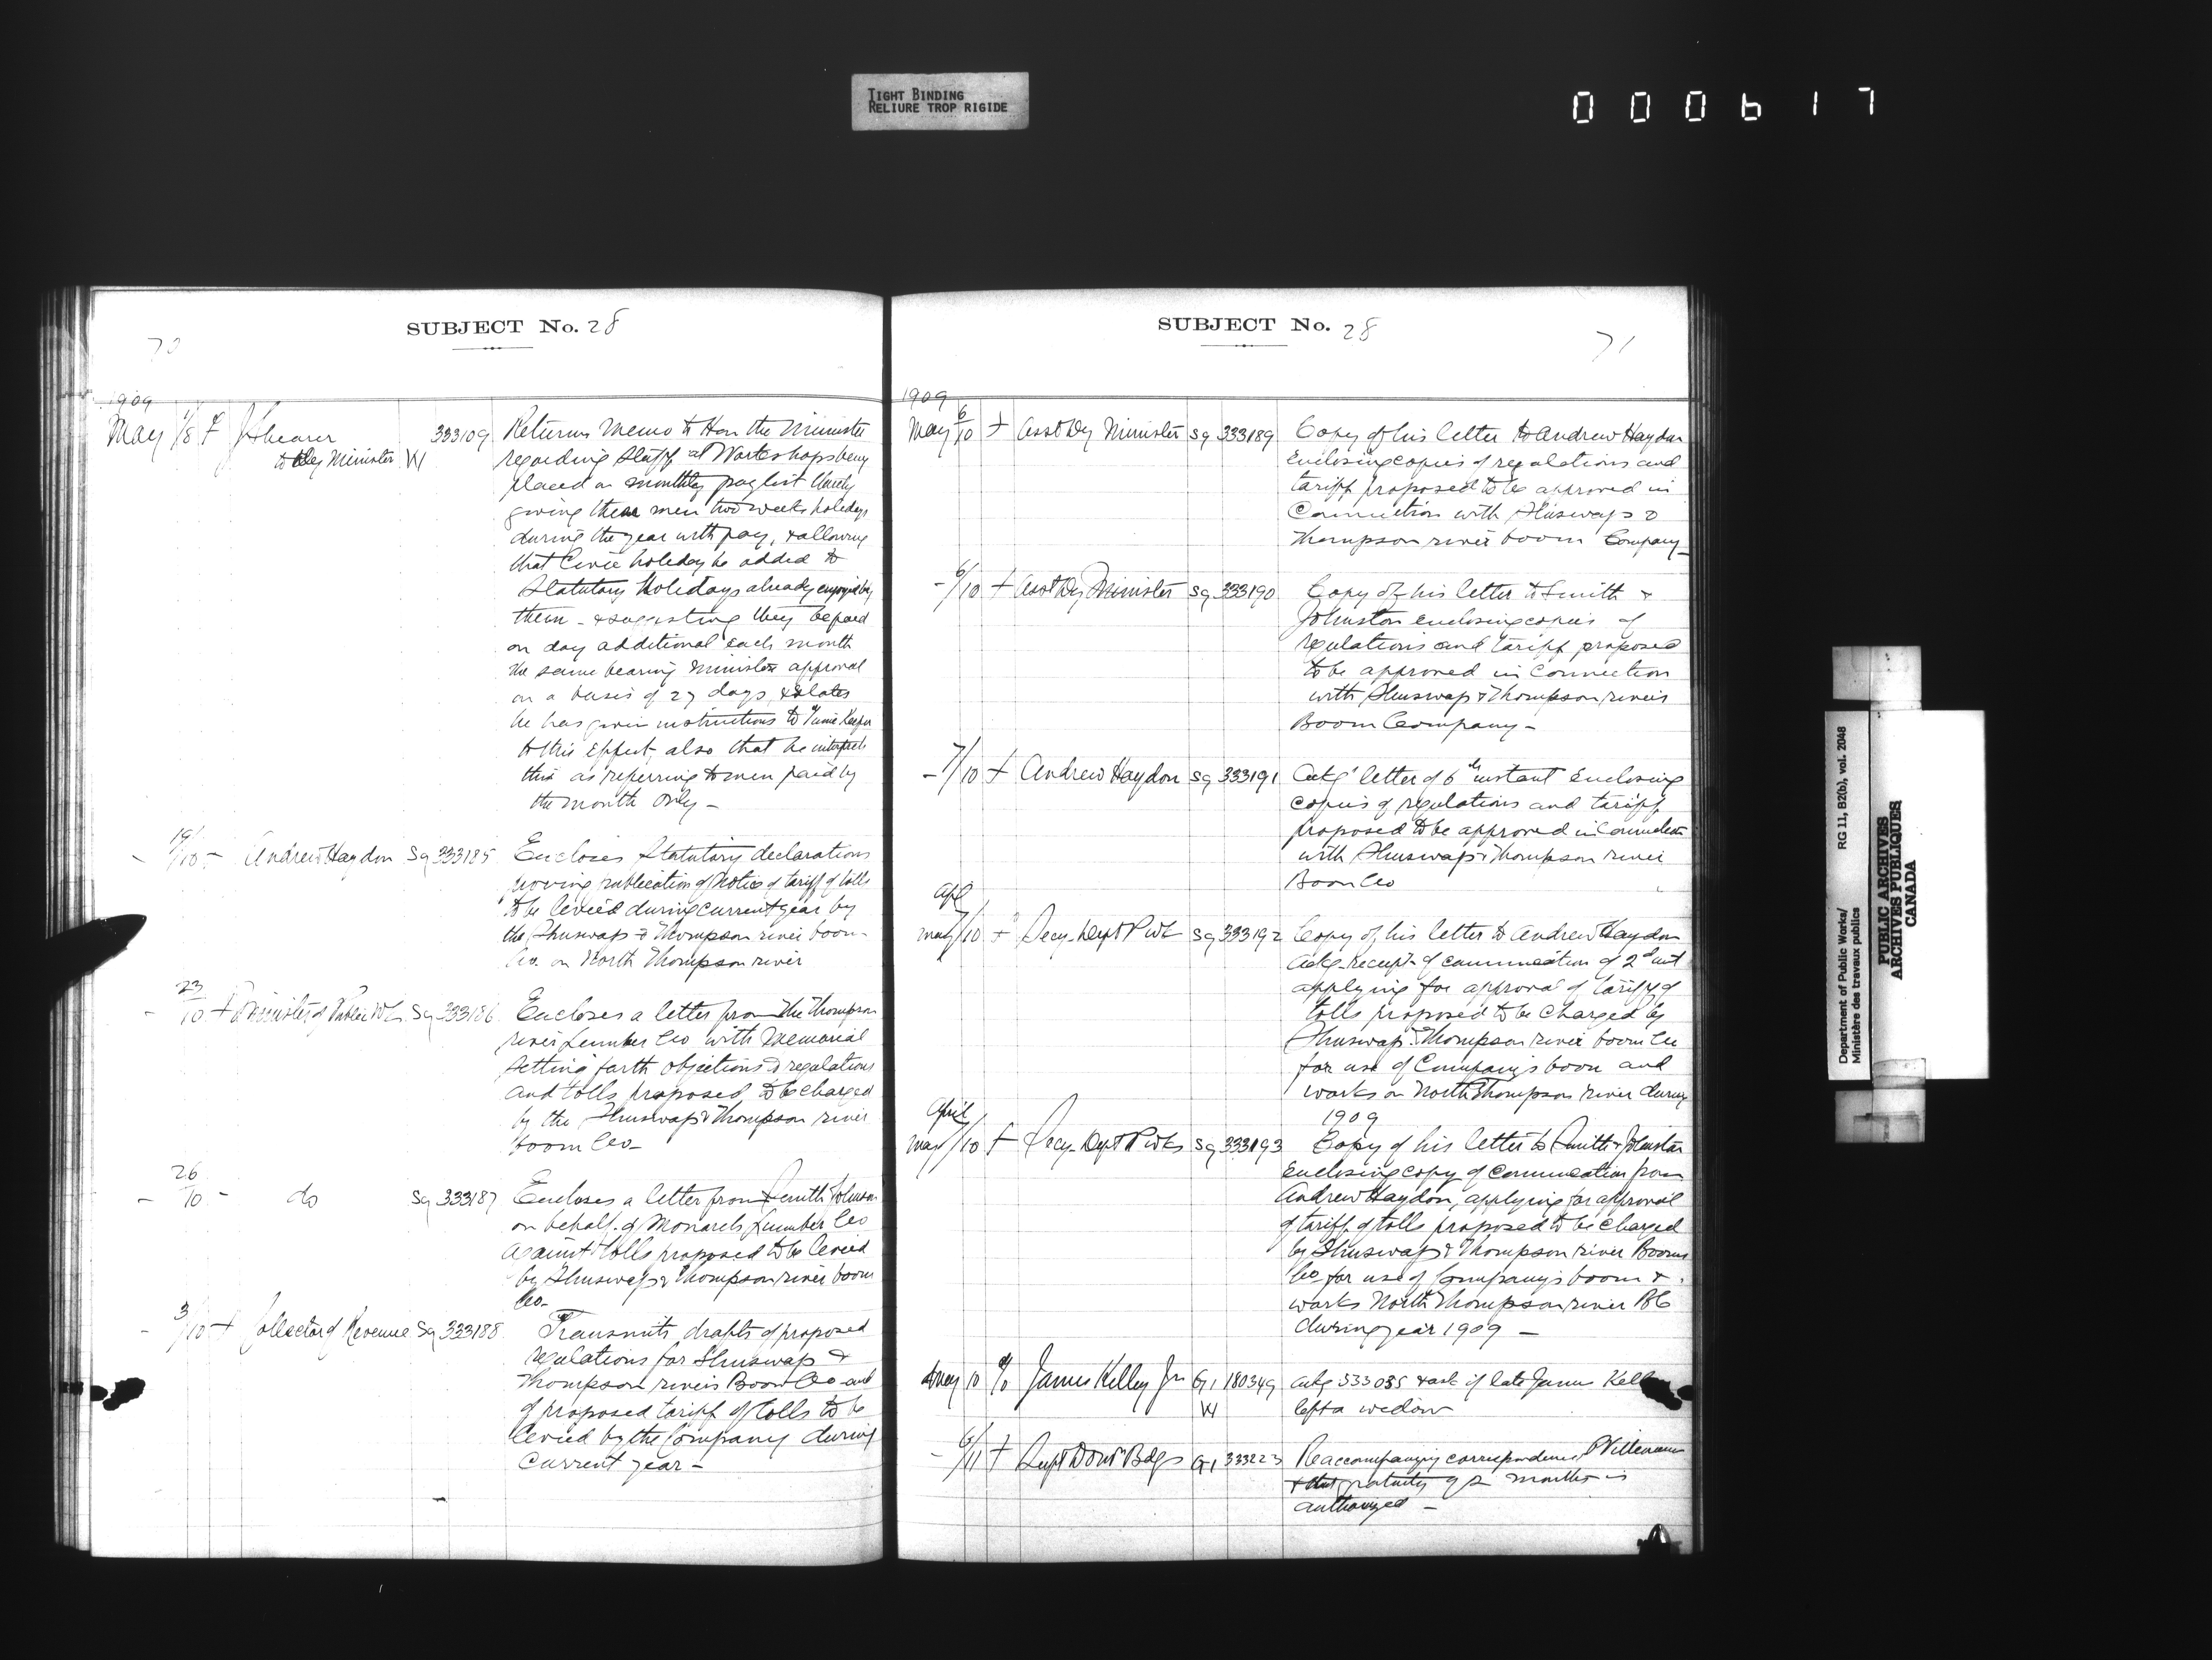 TIGHT BINDING
RELIURE TROP RIGIDE
000617
SUBJECT No. 28
70
1909
May 1/8 J Shearer 333109 Returns Memo to Hon the Minister
to Dy Minister W regarding Staff at Workshops being
placed on monthly pay list thereby
giving these men two weeks holidays
during the year with pay, & allowing
that Civic holiday be added to
Statutory Holidays already enjoyed by
them - & suggesting they be paid
on day additional each month
the same bearing Ministers approval
on a basis of 27 days, & states
he has given instructions to Time Keeper
to this effect, also that he interprets
this as referring to men paid by
the month only -
- 19/10 - Andrew Haydon Sg 333185 Encloses Statutory declarations
proving publication of Notice of tariff of tolls
to be levied during current year by
the Shuswap & Thompson river boom
Co. on North Thompson river
- 23/10 + Minister of Public Wks Sg 333186 Encloses a letter from the Thompson
river Lumber Co with Memorial
setting forth objections to regulations
and tolls proposed to be charged
by the Shuswap & Thompson river
boom Co-
- 26/10 - do Sg 333187 Encloses a letter from Smith Johnson
on behalf of Monarch Lumber Co
against tolls proposed to be levied
by Shuswap & Thompson river boom
Co-
- 3/10 + Collector of Revenue Sg 333188 Transmits drafts of proposed
regulations for Shuswap &
Thompson rivers Boom Co and
of proposed tariff of tolls to be
levied by the Company during
current year -
SUBJECT No. 28
71
1909
May 6/10 + Asst Dy Minister Sg 333189 Copy of his letter to Andrew Haydon
enclosing copies of regulations and
tariff proposed to be approved in
Connection with Shuswap &
Thompson river boom Company -
- 6/10 + Asst Dy Minister Sg 333190 Copy of his letter to Smith &
Johnston enclosing copies of
regulations and tariff proposed
to be approved in connection
with Shuswap & Thompson rivers
Boom Company -
- 7/10 + Andrew Haydon Sg 333191 Ackg letter of 6th instant enclosing
copies of regulations and tariff
proposed to be approved in connection
with Shuswap & Thompson river
Boom Co
Apl
May 7/10 + Secy Dept P Wk Sg 333192 Copy of his letter to Andrew Haydon
Ackg receipt of communication of 2d inst
applying for approval of tariff of
tolls proposed to be charged by
Shuswap & Thompson river boom Co
for use of Company's boom and
works on North Thompson river during
1909
April
May 7/10 + Secy Dept P Wks Sg 333193 Copy of his letter to Smith & Johnston
enclosing copy of communication from
Andrew Haydon, applying for approval
of tariff of tolls proposed to be charged
by Shuswap & Thompson river Booms
Co for use of Company's boom &
works North Thompson river BC
during year 1909 -
May 10 James Kelley Jr G1 180349 ackg 333035 & ask if late James
W left a widow
- 6/11 + Supt Dom Bdgs G1 333223 Re accompanying correspondence
& that gratuity of 2 months is
authorized -
Department of Public Works/ RG 11, B2(b), vol. 2048
Ministère des travaux publics
PUBLIC ARCHIVES
ARCHIVES PUBLIQUES
CANADA